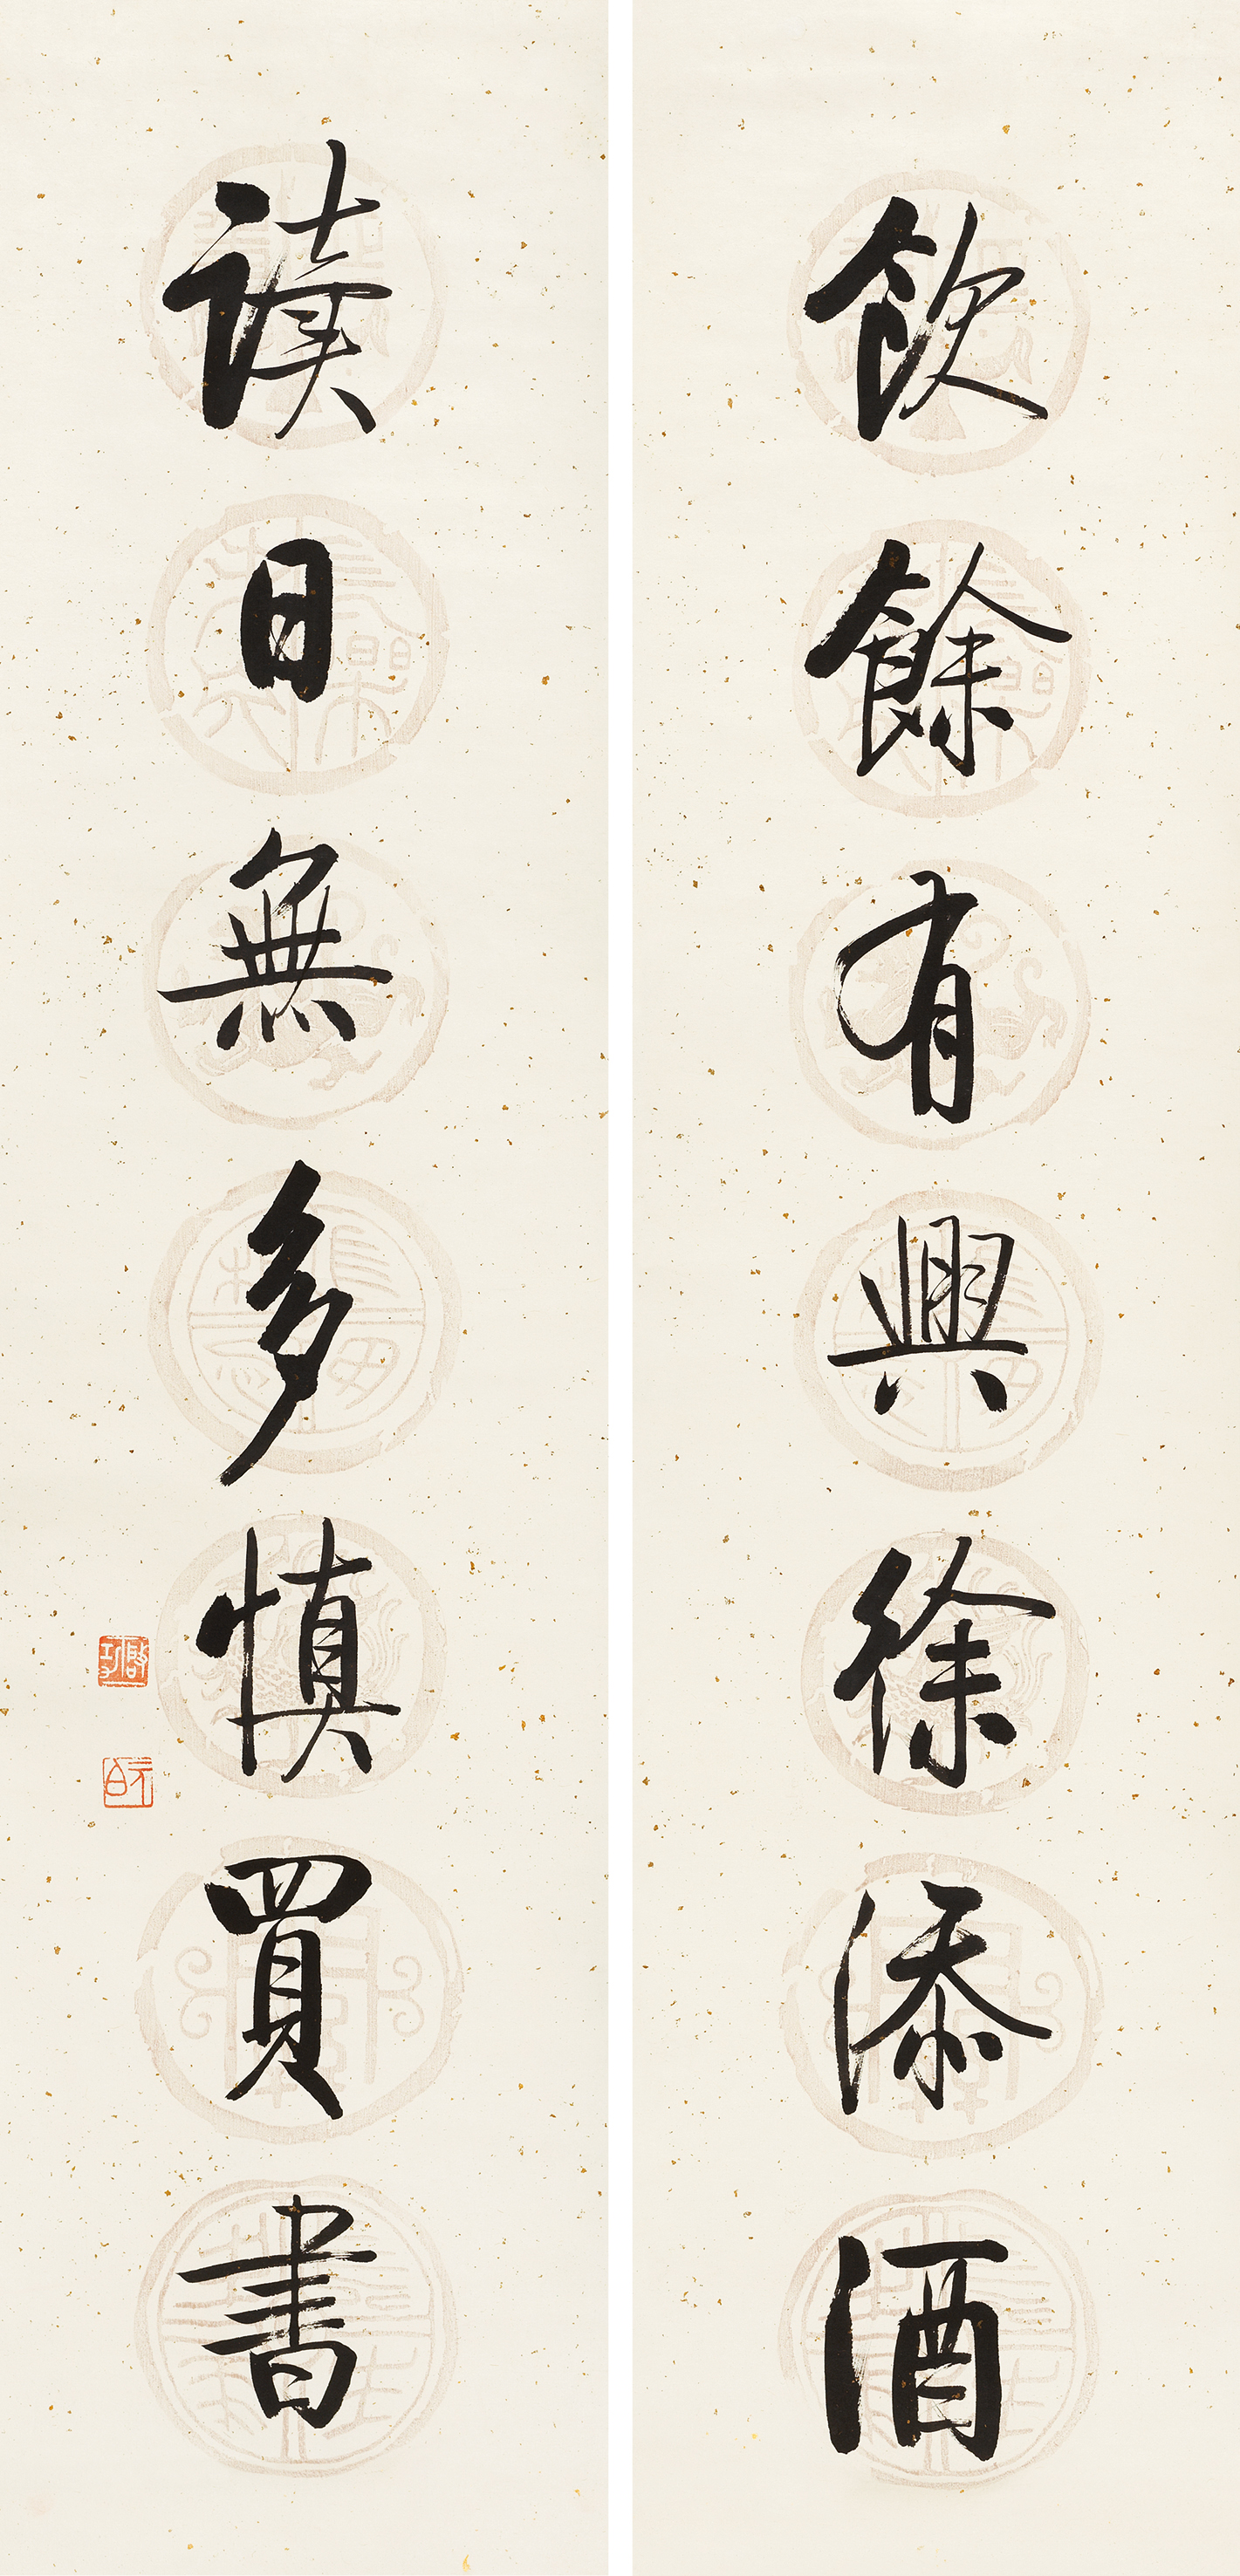 飲餘有興徐添酒
讀日無多慎買書
啟功
元白